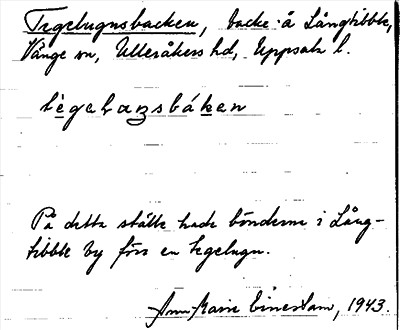 Tegelugnsbacken, backe å Långtibble,
Vänge sn, Ulleråkers hd, Uppsala l.
På detta ställe hade bönderna i Lång-
tibble by förr en tegelugn.
Ann-Marie Einerstam, 1943.